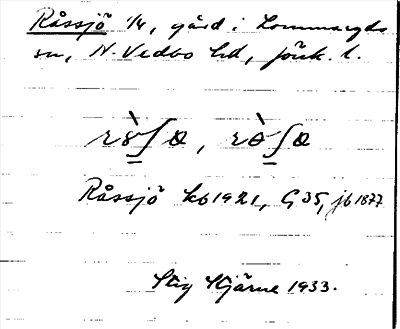 Råssjö 1/4, gård i Lommaryds
sn, N. Vedbo hd, Jönk. l.
Råssjö kb 1921, G 35, jb 1877
Stig Stjärne 1933.